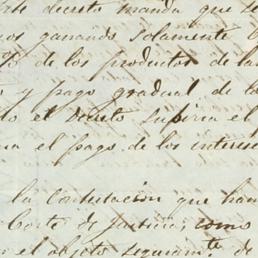 este decreto manda que se
nos ganando solamente
% de los productos de las
y pago gradual de
el decreto supiera el
el pago de los intereses
la contestacion que han
Corte de Justicia; como
el objeto seguramte de